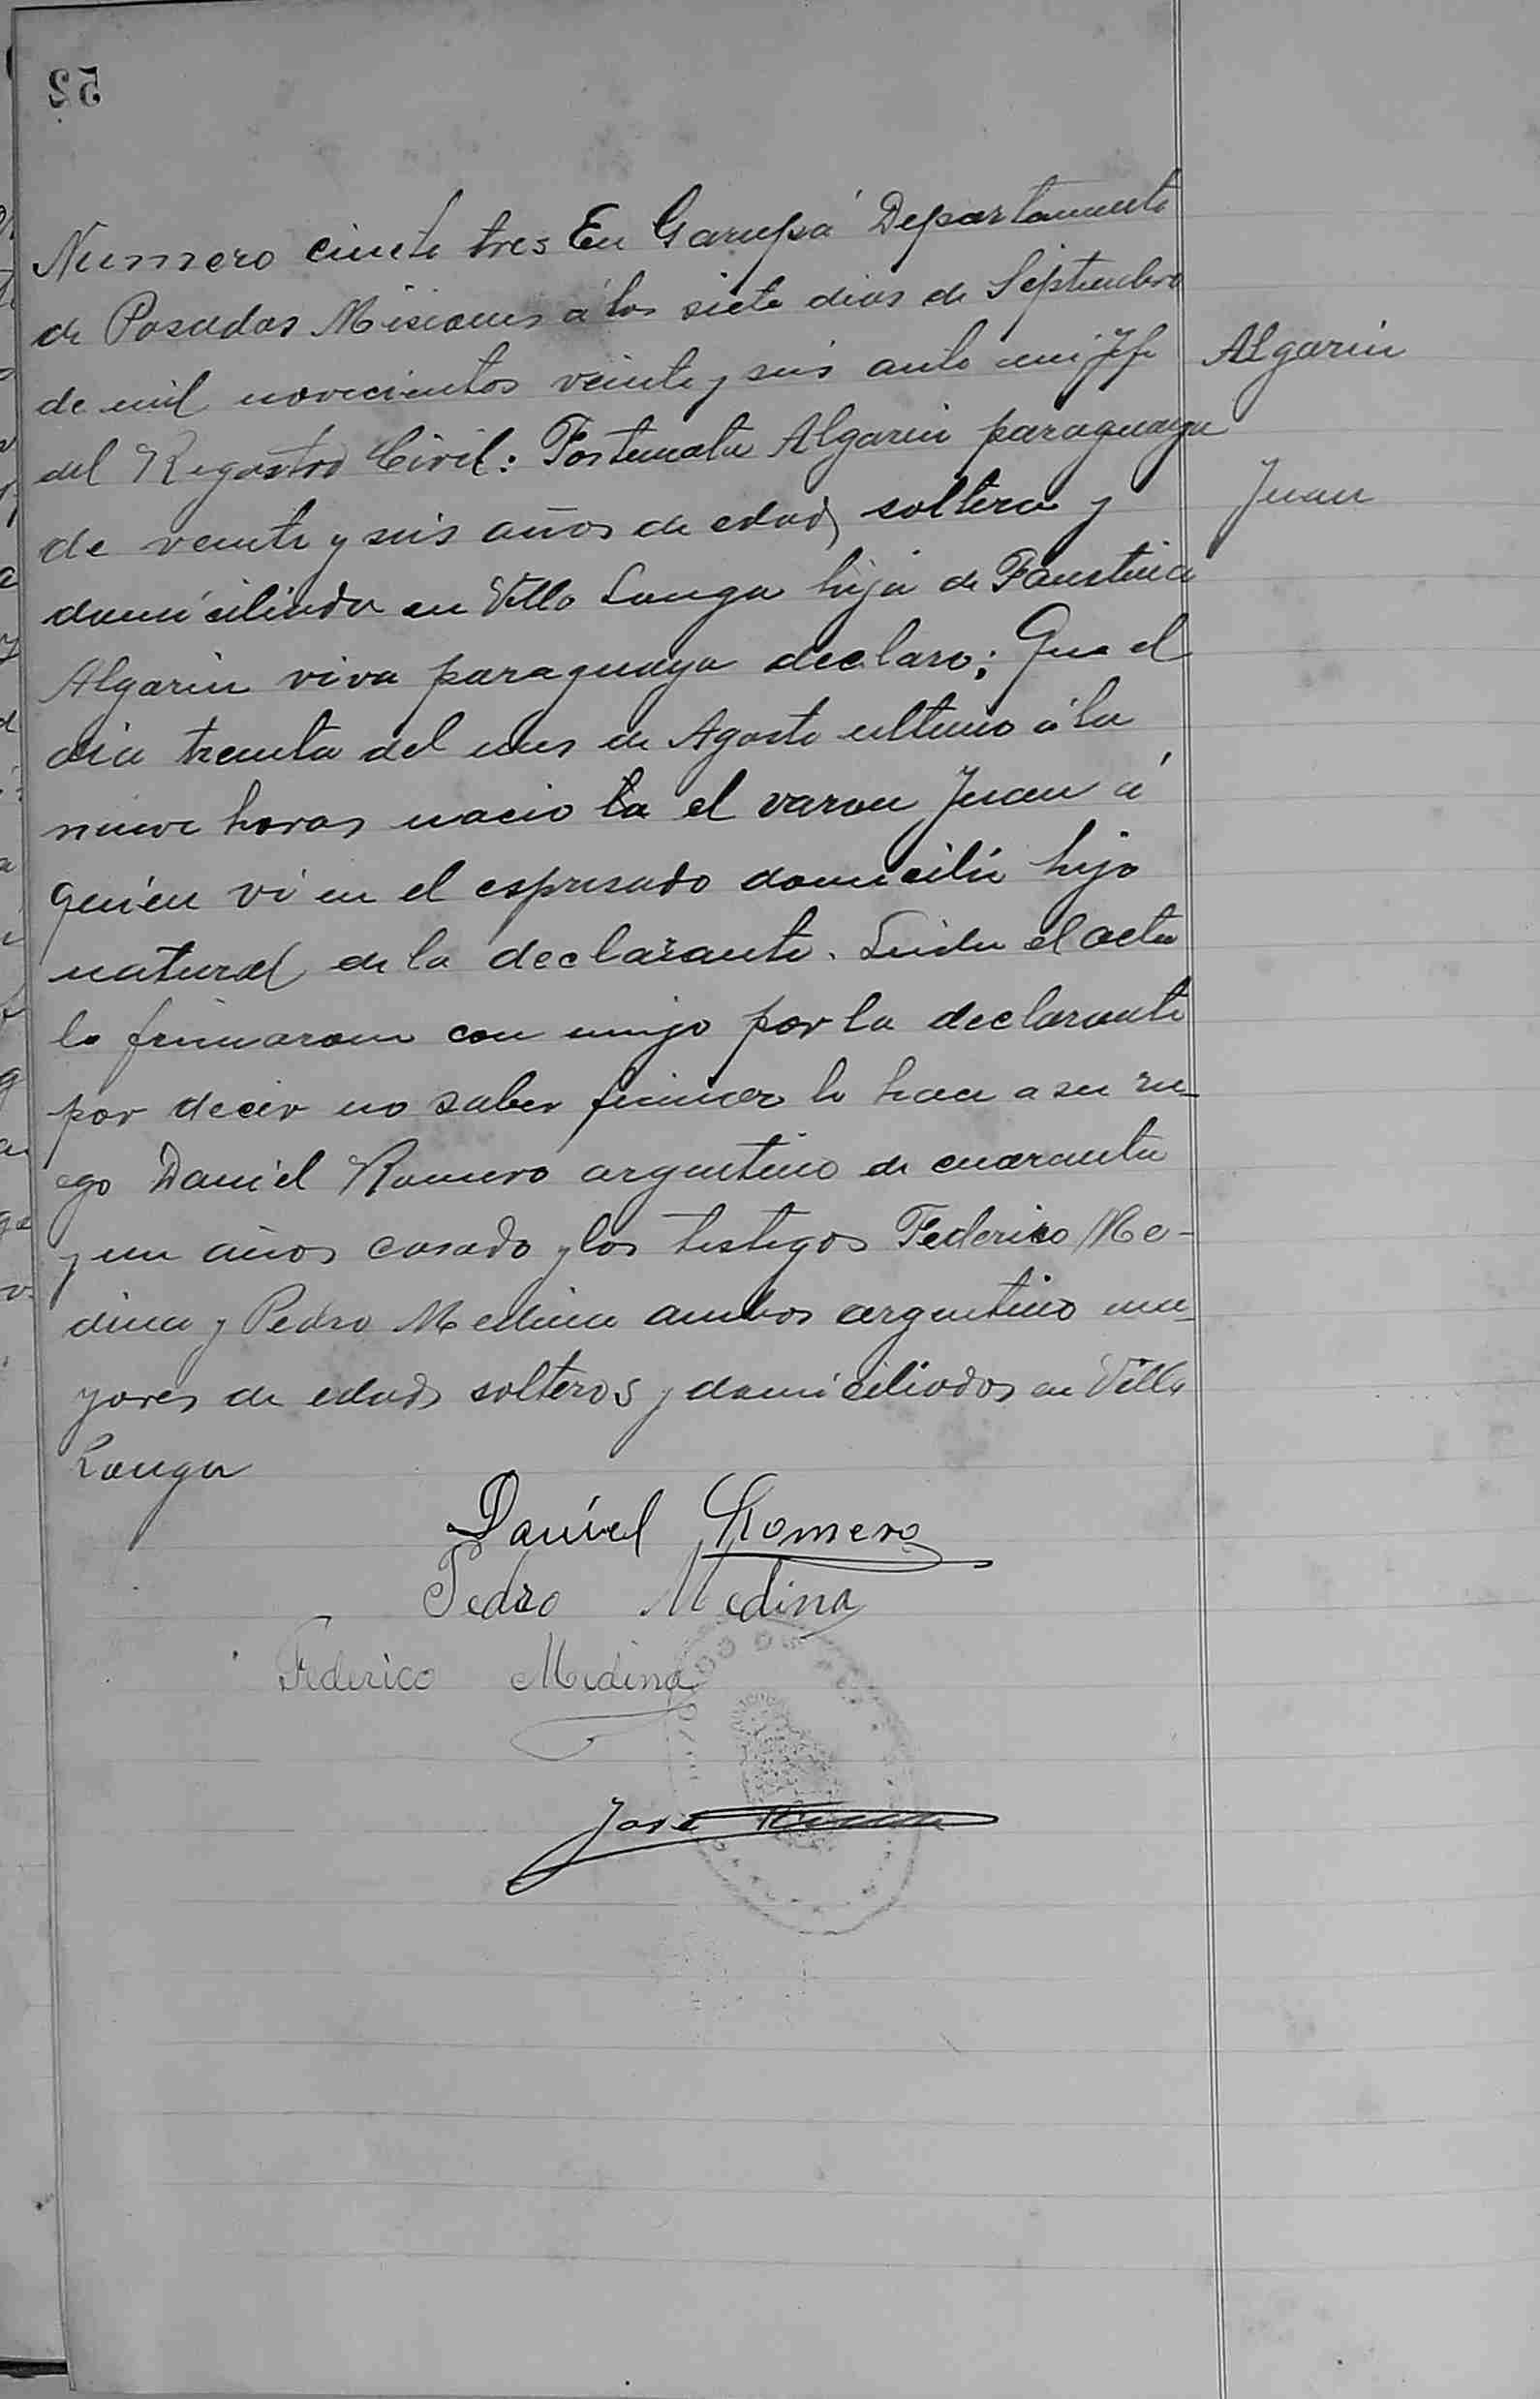 52
Numero cincta tres En Garupá Departamento
de Posadas Misiones á los siete dias de Septiembre
de mil novecientos veinte y seis ante mi Jefe
del Registro Civil: Fortunata Algarin paraguaya
de veinte y seis años de edad soltera y
domiciliada en Villa Longa hija de Faustina
Algarin viva paraguaya declaro: Que el
dia treinta del mes de Agosto ultimo á la
nueve horas nacio la el varon Juan á
quien vi en el espresado domicilio hijo
natural de la declarante. Leida el acta
la firmaron con migo por la declarante
por decir no saber firmar lo hace a su ru-
ego Daniel Romero argentino de cuarenta
y un años casado y los testigos Federico Me-
dina y Pedro Medina ambos argentino ma-
yores de edad solteros y domiciliados en Villa
Longa
Algarin
Juan
Daniel Romero
Pedro Medina
Federico Medina
José